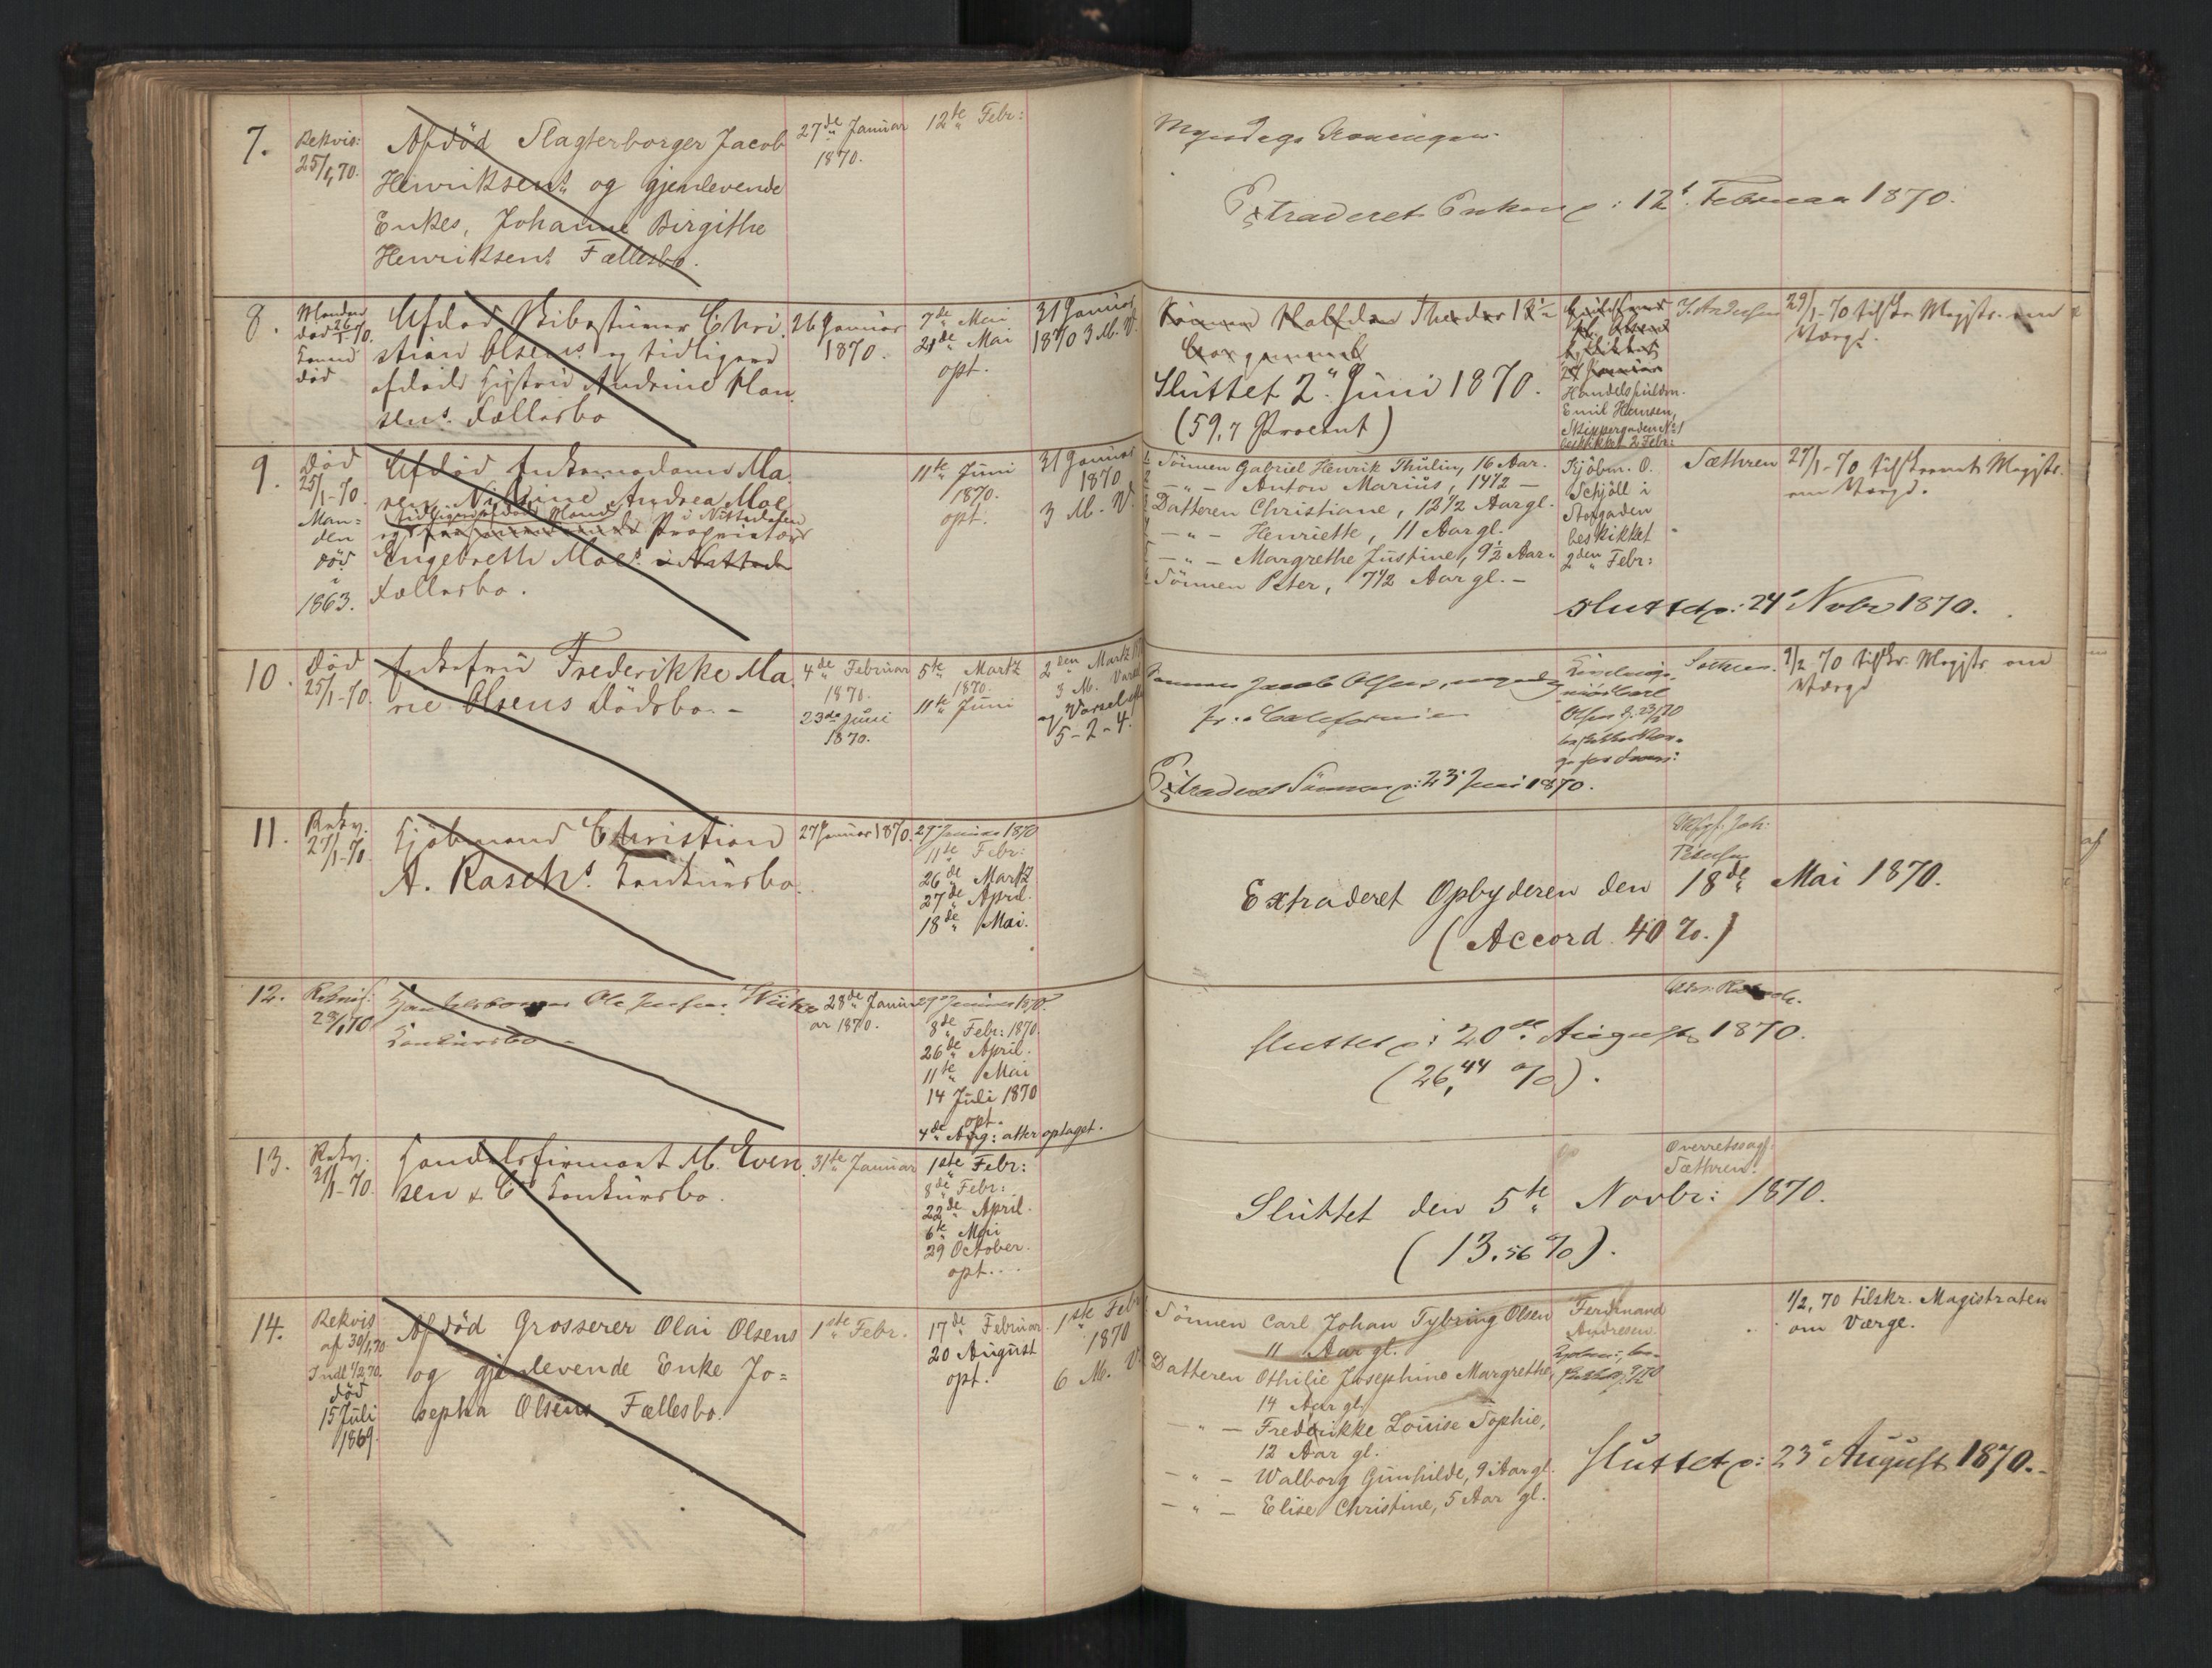 7.
Rekvis:
25/1,70.
Afdød Slagterborger Jacob
Henriksens og gjenlevende
Enkes, Johanne Birgithe
Henriksens Fællesbo.
27de Januar
1870.
12te Febr:
Extraderet Enken p: 12t Februar 1870.
8.
Manden
død 26/1-70.
død
Afdød Christian
Olsens og tidligere
afdøde Hustru Andrine Hansens
Fællesbo
26 Januar
1870.
7de Mai
21de Mai
opt.
31 Januar
1870 3 M. V.
Sønnen Halfdan Theodor
Sluttet 2. Juni 1870.
(59,7 Procent)
Handelsfuldm.
Emil Hansen,
Skippergaden No 1
beskikket 2 Febr:
29/1-70 tilskr. Magistr. om
Værge.
9.
Død
25/1-70.
Manden
død
i
1863.
Afdød Enkemadame Maren
Nikoline Andrea Moe
tidligere afdøde Mand i Nittedalen
og Proprietær
Engebreth Moes
Fællesbo.
11te Juni
1870.
opt.
31 Januar
1870
3 M. V.
Sønnen Gabriel Henrik Thulin, 16 Aar.
— " — Anton Marius, 14 1/2 —
Datteren Christiane, 12 1/2 Aar gl.
— " — Henriette, 11 Aar gl.
— " — Margrethe Justine, 9 1/2 Aar
Sønnen Peter, 7 1/2 Aar gl. —
Kjøbm. O.
Schjöll i
Storgaden
beskikket
2den Febr:
Sæthren
27/1-70 tilskrevet Magistr.
om Værge.
Sluttet p: 24' Novbr 1870.
10.
Død
25/1-70.
Enkefru Frederikke Marie
Olsens Dødsbo. -
4de Februar
1870.
23de Juni
1870.
5te Martz
1870.
11te Juni
2den Martz
3 M. Varsel
og Varsel
5-2-4.
Sønnen Jacob Olsen, myndig
fr: Californien
Sæthren.
1/2 70 tilskr. Magistr om
Værge
Extraderet Sønnen p: 23' Juni 1870.
11.
Rekv.
27/1-70
Kjøbmand Christian
A. Raschs. Konkursbo.
27 Januar 1870.
29 Januar 1870
11te Febr:
26de Martz
27de April.
18de Mai.
Extraderet Opbyderen den 18de Mai 1870.
(Accord 40 %.)
12.
Rekvis:
28/1,70
Handelsborger Ole Jensen
Konkursbo -
28de Januar
1870.
29 Januar 1870
8de Febr: 1870.
26de April.
11te Mai
14 Juli 1870
opt.
4de Aug: atter optaget.
Sluttet p: 20de August 1870.
(26,44 %).
13.
Rekv.
31/1-70.
Handelsfirmaet M. Evensen
& Co Konkursbo.
31te Januar
1ste Febr:
8de Febr:
22de April.
6te Mai
29 October.
opt.
Overretssagf:
Sæthren.
Sluttet den 5te Novbr: 1870.
(13.56 %).
14.
Rekvis
af 30/1,70
Indl 1/2,70.
død
15 Juli
1869.
Afdød Grosserer Olai Olsens
og gjenlevende Enke Jo=
sepha Olsens Fællesbo.
1ste Febr.
17de Februar.
20 August
opt.
1ste Febr
1870
6 M. V.
Sønnen Carl Johan Tybring Olsen
11 Aar gl.
Datteren Othilie Josephine Margrethe,
14 Aar gl.
— " — Frederikke Louise Sophie,
12 Aar gl.
— " — Walborg Gunhilde, 9 Aar gl.
— " — Elise Christine, 5 Aar gl.
Ferdinand
Andresen
1/2, 70 tilskr. Magistraten
om Værge.
Sluttet p: 23' August 1870.-